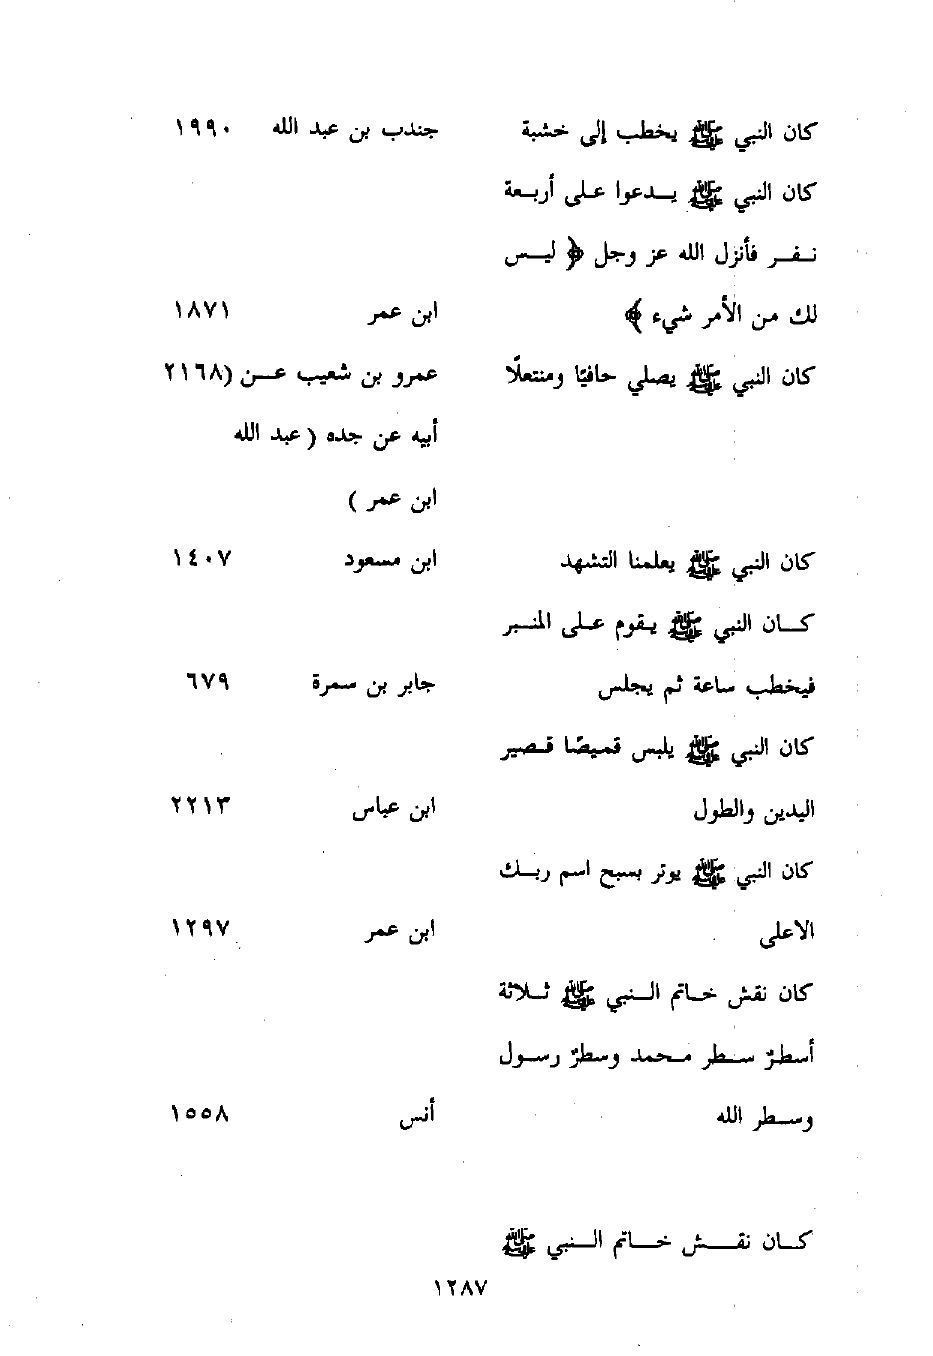 كان النبي ﷺ يخطب إلى خشبة جندب بن عبد الله ١٩٩٠
كان النبي ﷺ يـدعوا عـلى أربـعة
نـفـر فأنزل الله عز وجل ﴿ ليـس
لك من الأمر شيء ﴾ ابن عمر ١٨٧١
كان النبي ﷺ يصلي حافيًا ومنتعلًا عمرو بن شعيب عـن (٢١٦٨
أبيه عن جده ( عبد الله
ابن عمر )
كان النبي ﷺ يعلمنا التشهد ابن مسعود ١٤٠٧
كـان النبي ﷺ يـقوم عـلى المنـبر
فيخطب ساعة ثم يجلس جابر بن سمرة ٦٧٩
كان النبي ﷺ يلبس قميصًا قـصير
اليدين والطول ابن عباس ٢٢١٣
كان النبي ﷺ يوتر بسبح اسم ربـك
الاعلى ابن عمر ١٢٩٧
كان نقش خـاتم الـنبي ﷺ ثـلاثة
أسطرٌ سـطر مـحمد وسطرٌ رسـول
وسـطر الله أنس ١٥٥٨
كـان نقـش خـاتم الـنبي ﷺ
١٢٨٧